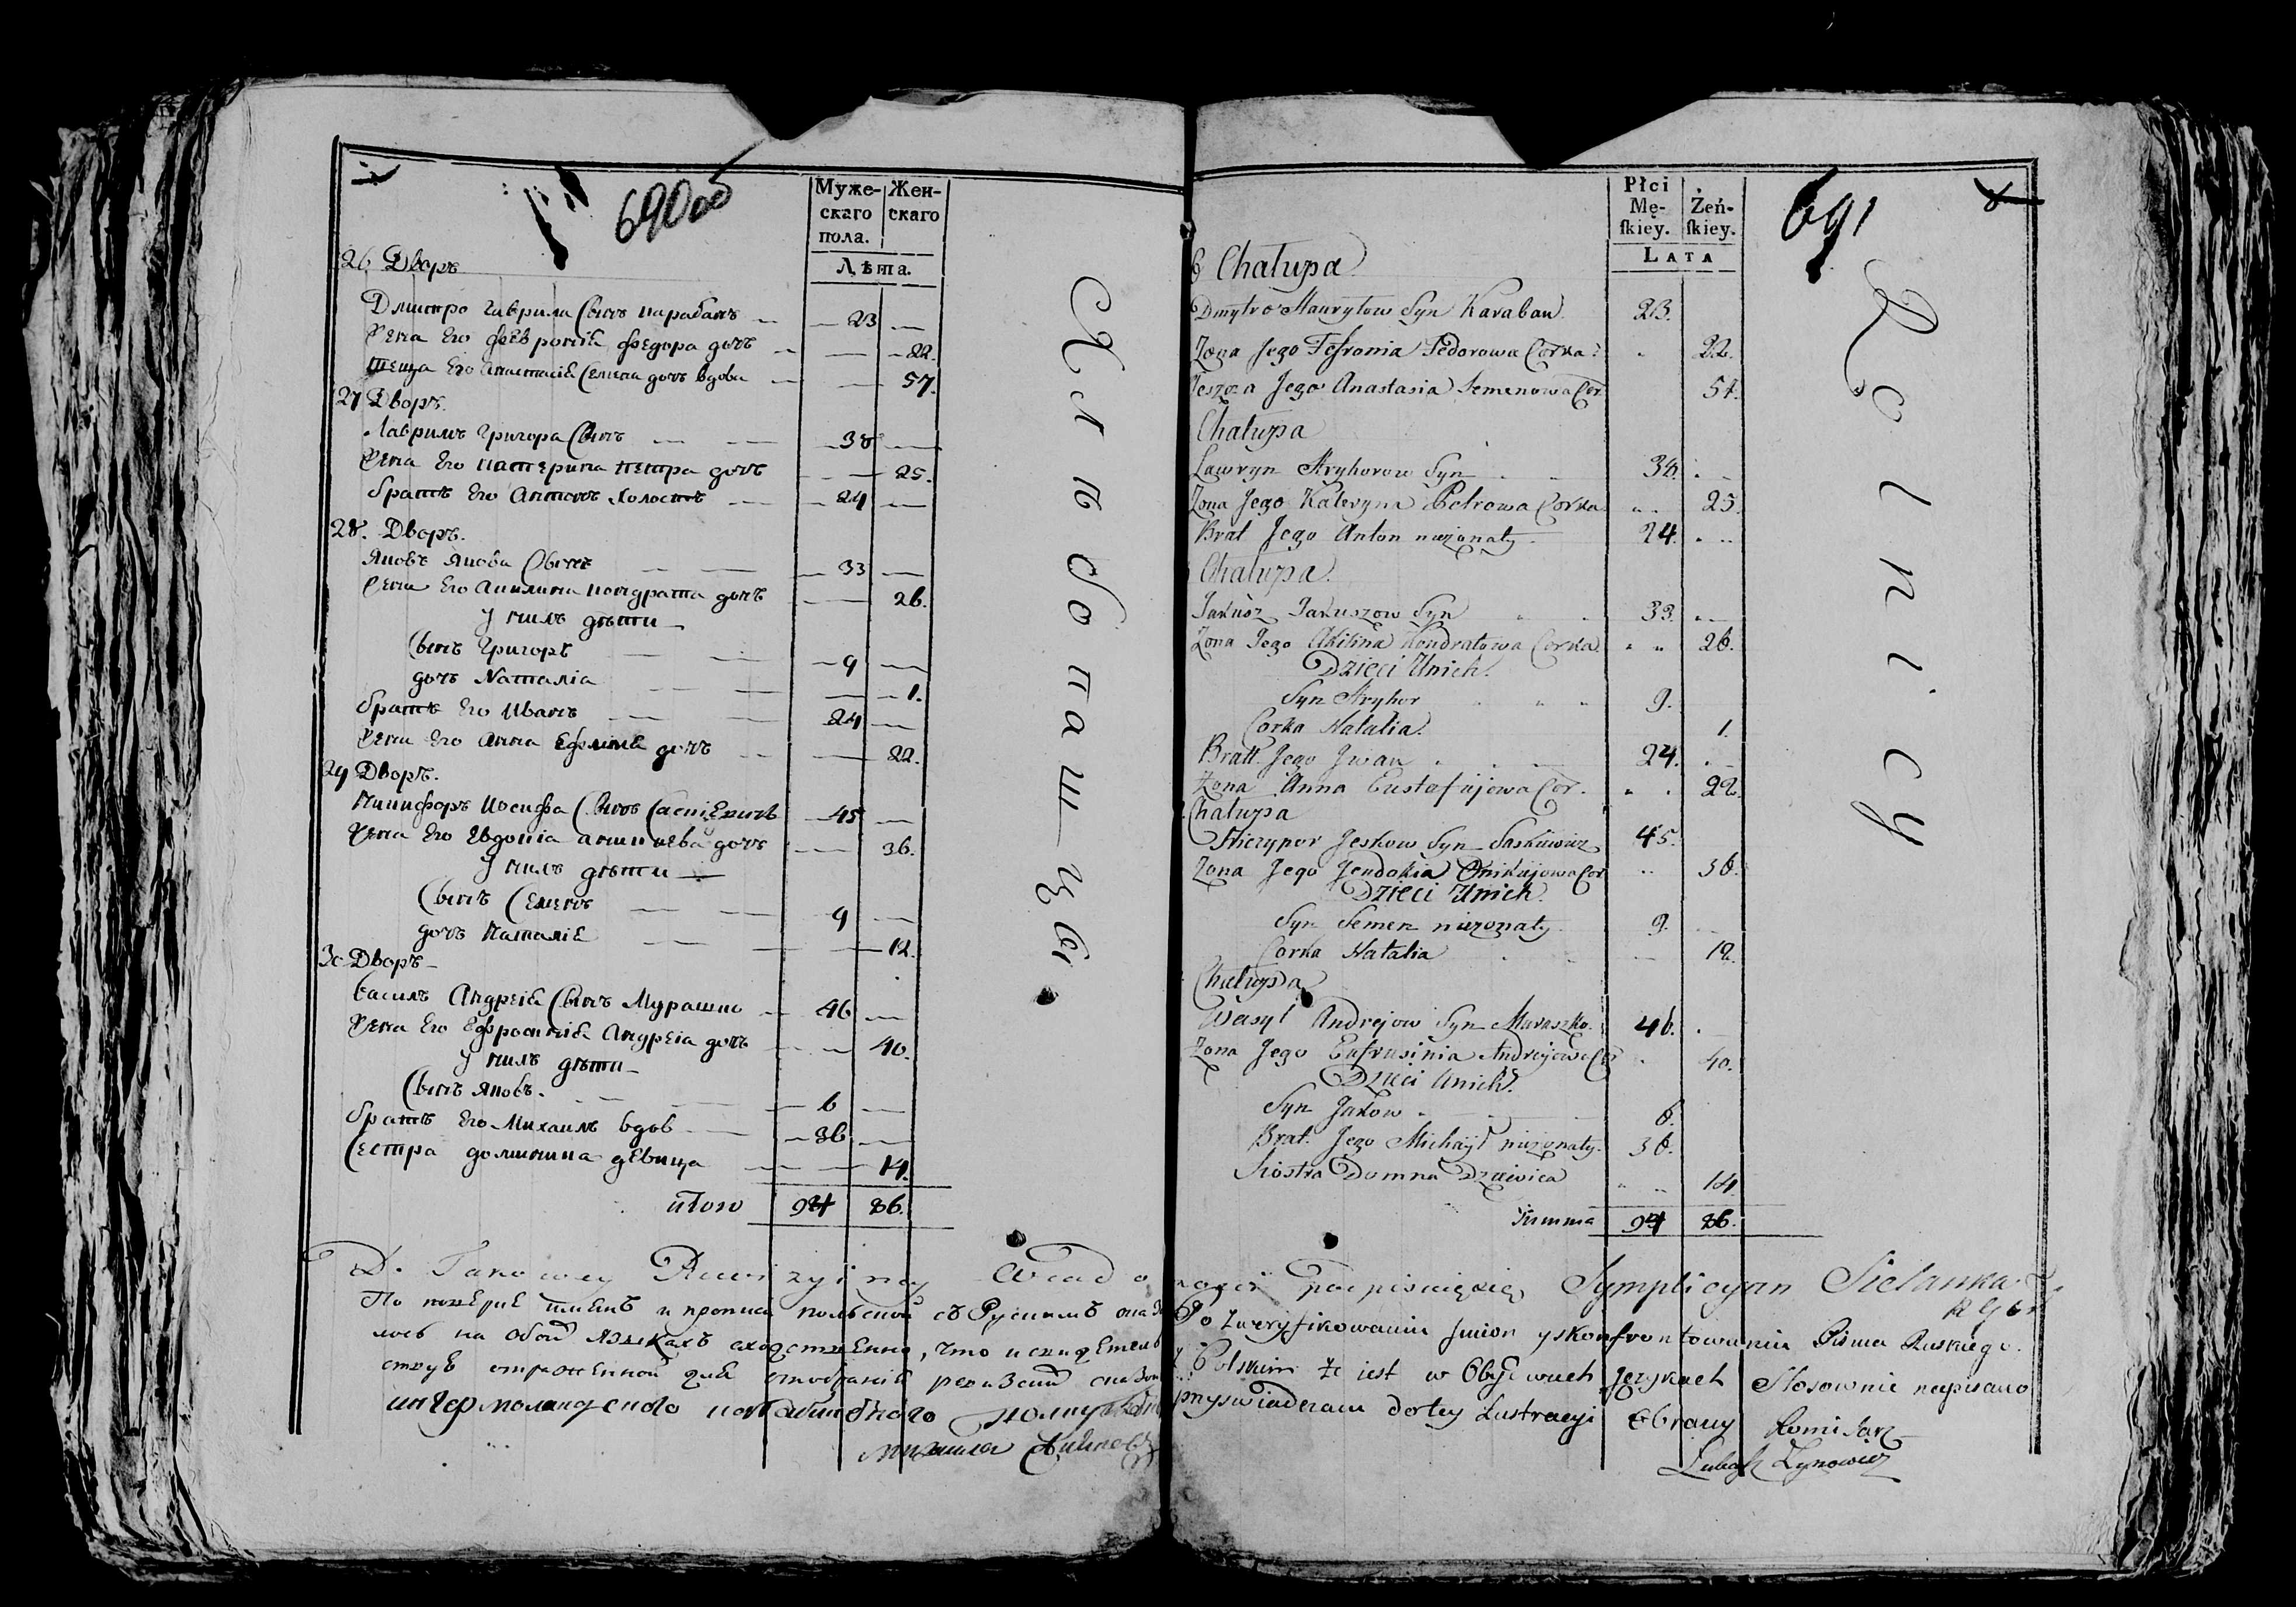 690об
Муже- Жен-
скаго скаго
пола.
Лѣта.
26 Дворъ
Дмитро Гаврила Сынъ Карабанъ 23
Жена Его Февронія Федора дочь 22.
теща Его Анастасія Семена дочь вдова 57.
27 Дворъ.
Лавринъ Григора Сынъ 38
Жена Его Катерина Петра дочь 25.
братъ Его Антонъ холостъ 24
28. Дворъ.
Яковъ Якова Сынъ 33
Жена Его Акилина Кондрата дочь 26.
У нихъ дѣти
Сынъ Григоръ 9
дочь Наталіа 1.
братъ Его Иванъ 24
Жена Его Анна дочь 22.
29 Дворъ.
Никифоръ Иосифа Сынъ 45
Жена Его Евдокіа дочь 36.
У нихъ дѣти
Сынъ Семенъ 9
дочь Наталіа 12.
30 Дворъ
Василь Андрея Сынъ Мурашко 46
Жена Его Ефросинія Андреіа дочь 40.
У нихъ дѣти
Сынъ Яковъ. 6
братъ Его Михаилъ вдов 36
Сестра домникиа дѣвица 14.
итого 94 86.
Хлѣбопашцы
Płci
Mę- Żeń-
ſkiey. ſkiey.
LATA
691
6 Chałupa
Dmytro Hawryłow Syn Karaban 23.
Żona Jego Fefronia Fedorowa Corka 22.
Teszcza Jego Anastasia Semenowa Cor. 57.
Chałupa
Ławryn Hryhorow Syn 38.
Żona Jego Kateryna Petrowa Corka 25.
Brat Jego Anton nieżonaty 24.
Chałupa.
Jakusz Jakuszow Syn 33.
Żona Jego Akilina Kondratowa Corka 26.
Dzieci Unich.
Syn Hryhor 9.
Corka Natalia. 1.
Bratt Jego Jwan 24.
Żona Anna Eustafijowa Cor. 22.
Chałupa
Niczypor Jeskow Syn Saskiewicz 45.
Żona Jego Jewdokia Onikijowa Cor 36.
Dzieci Unich.
Syn Semen nieżonaty 9.
Corka Natalia 12.
Chałupa
Wasyl Andrejow Syn Muraszko. 46.
Żona Jego Eufrusinia Andrejewa Co 40.
Dzieci Unich.
Syn Jakow 6.
Brat. Jego Michaył nieżonaty. 36.
Siostra Domna Dziewica 14.
Summa 94 86.
Rolnicy
Do Takowey Rewizyiney Wiadomości podpisuię się Symplicyan Sielanka
По повѣрке именъ и прописи польской съ Рускимъ
на обоих языкахъ сходственно, что и свидетель
Po Zweryfikowaniu Jmion y skonfrontowaniu Pisma Ruskiego.
z Polskim że iest w Obydwuch Językach Stosownie napisano
przyświadczam do tey Lustracyi Obrany Komisarz